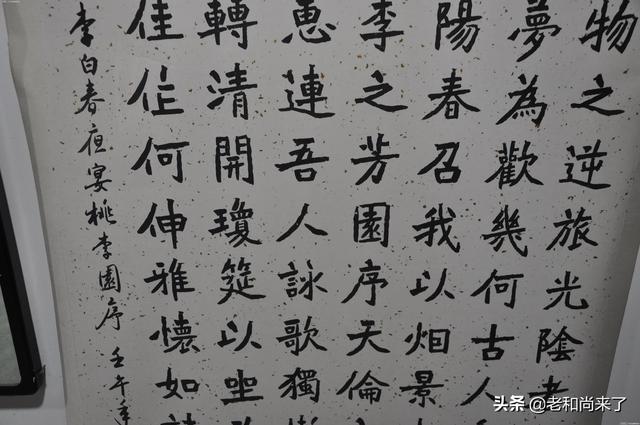 物之逆旅光陰者
夢為歡幾何古人
陽春召我以烟景
李之芳園序天倫
恵連吾人詠歌獨
轉清開瓊筵以坐
佳作何伸雅懷如
李白春夜宴桃李園序 壬午年
头条 @老和尚来了